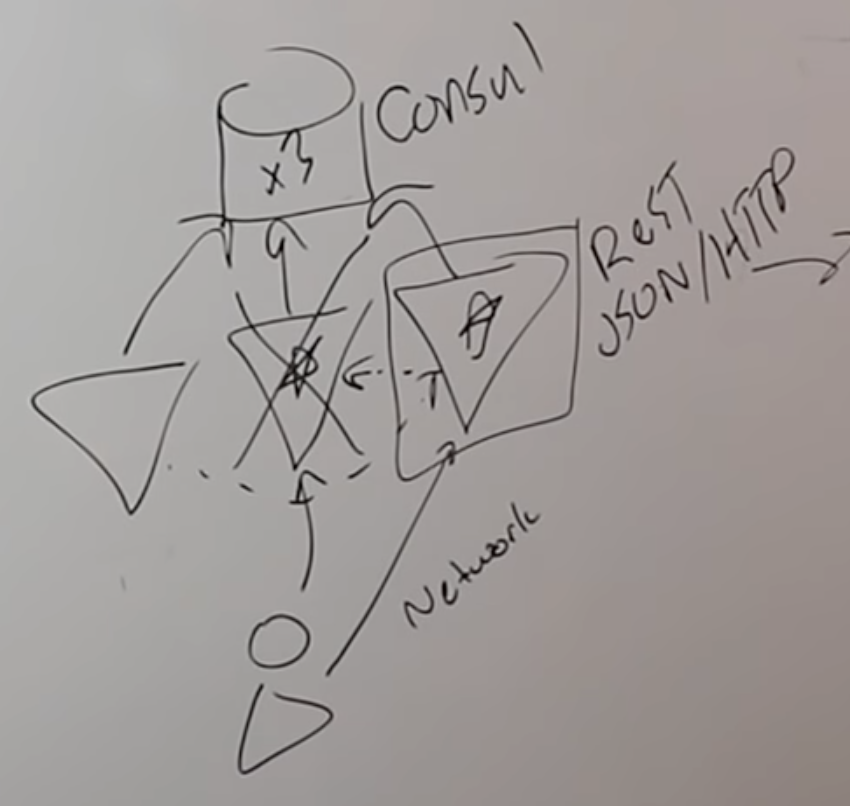 Consul
x3
ReST
JSON/HTTP
Network